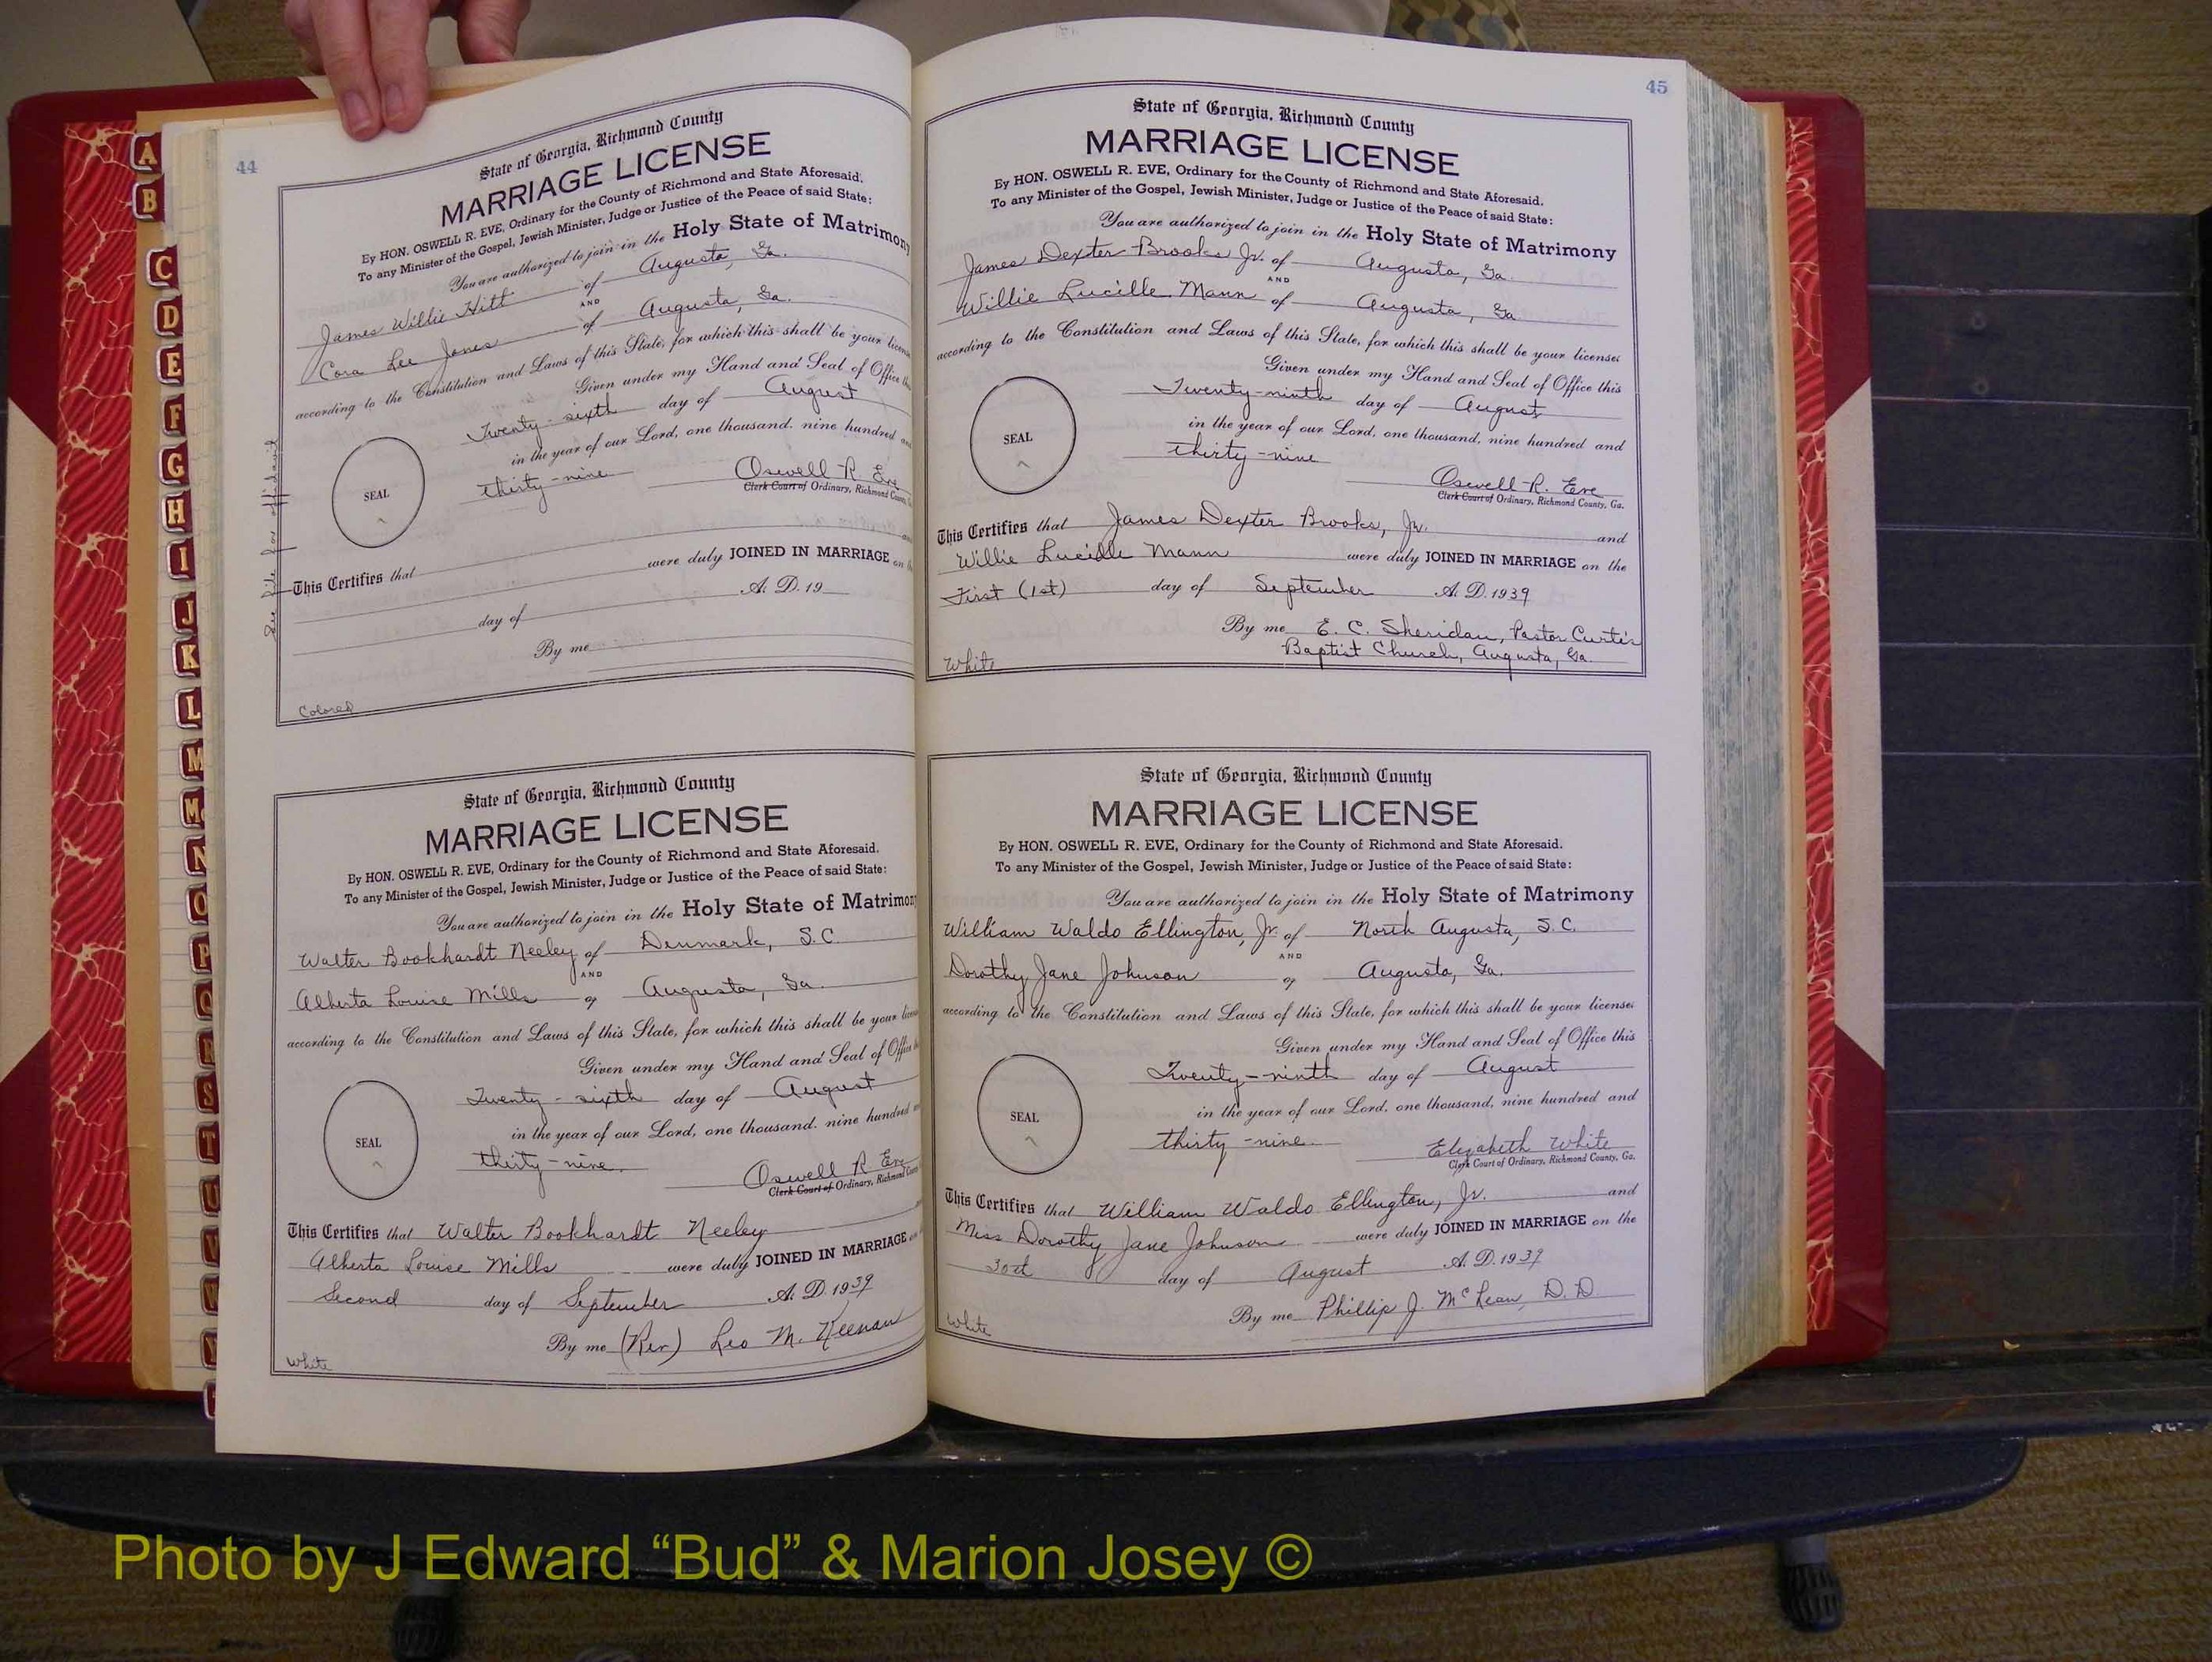 44
State of Georgia, Richmond County
MARRIAGE LICENSE
By HON. OSWELL R. EVE, Ordinary for the County of Richmond and State Aforesaid.
To any Minister of the Gospel, Jewish Minister, Judge or Justice of the Peace of said State:
You are authorized to join in the Holy State of Matrimony
James Willie Hitt of Augusta, Ga.
AND
Cora Lee Jones of Augusta, Ga.
according to the Constitution and Laws of this State, for which this shall be your license
Given under my Hand and Seal of Office
Twenty-sixth day of August
in the year of our Lord, one thousand, nine hundred
SEAL
thirty-nine
Oswell R. Eve
Clerk Court of Ordinary, Richmond County,
See file for affidavit
This Certifies that
were duly JOINED IN MARRIAGE on
day of A. D. 19
By me
Colored
State of Georgia, Richmond County
MARRIAGE LICENSE
By HON. OSWELL R. EVE, Ordinary for the County of Richmond and State Aforesaid.
To any Minister of the Gospel, Jewish Minister, Judge or Justice of the Peace of said State:
You are authorized to join in the Holy State of Matrimony
Walter Bookhardt Neeley of Denmark, S.C.
AND
Alberta Louise Mills of Augusta, Ga.
according to the Constitution and Laws of this State, for which this shall be your
Given under my Hand and Seal of Office
Twenty-sixth day of August
in the year of our Lord, one thousand, nine hundred
SEAL
thirty-nine.
Oswell R. Eve
Clerk Court of Ordinary, Richmond
This Certifies that Walter Bookhardt Neeley
Alberta Louise Mills were duly JOINED IN MARRIAGE
Second day of September A. D. 1939
By me (Rev) Leo M. Keenan
White
45
State of Georgia, Richmond County
MARRIAGE LICENSE
By HON. OSWELL R. EVE, Ordinary for the County of Richmond and State Aforesaid.
To any Minister of the Gospel, Jewish Minister, Judge or Justice of the Peace of said State:
You are authorized to join in the Holy State of Matrimony
James Dexter Brooks Jr. of Augusta, Ga.
AND
Willie Lucille Mann of Augusta, Ga
according to the Constitution and Laws of this State, for which this shall be your license:
Given under my Hand and Seal of Office this
Twenty-ninth day of August
in the year of our Lord, one thousand, nine hundred and
SEAL
thirty-nine
Oswell R. Eve
Clerk Court of Ordinary, Richmond County, Ga.
This Certifies that James Dexter Brooks, Jr. and
Willie Lucille Mann were duly JOINED IN MARRIAGE on the
First (1st) day of September A. D. 1939
By me E. C. Sheridan, Pastor Curtis
Baptist Church, Augusta, Ga.
White
State of Georgia, Richmond County
MARRIAGE LICENSE
By HON. OSWELL R. EVE, Ordinary for the County of Richmond and State Aforesaid.
To any Minister of the Gospel, Jewish Minister, Judge or Justice of the Peace of said State:
You are authorized to join in the Holy State of Matrimony
William Waldo Ellington, Jr. of North Augusta, S.C.
AND
Dorothy Jane Johnson of Augusta, Ga.
according to the Constitution and Laws of this State, for which this shall be your license:
Given under my Hand and Seal of Office this
Twenty-ninth day of August
in the year of our Lord, one thousand, nine hundred and
SEAL
thirty-nine.
Elizabeth White
Clerk Court of Ordinary, Richmond County, Ga.
This Certifies that William Waldo Ellington, Jr. and
Miss Dorothy Jane Johnson were duly JOINED IN MARRIAGE on the
30th day of August A. D. 1939
By me Phillip J. McLean, D.D.
White
A
B
C
D
E
F
G
H
I
J
K
L
M
Mc
N
O
P
Q
R
S
T
U
V
W
Photo by J Edward “Bud” & Marion Josey ©